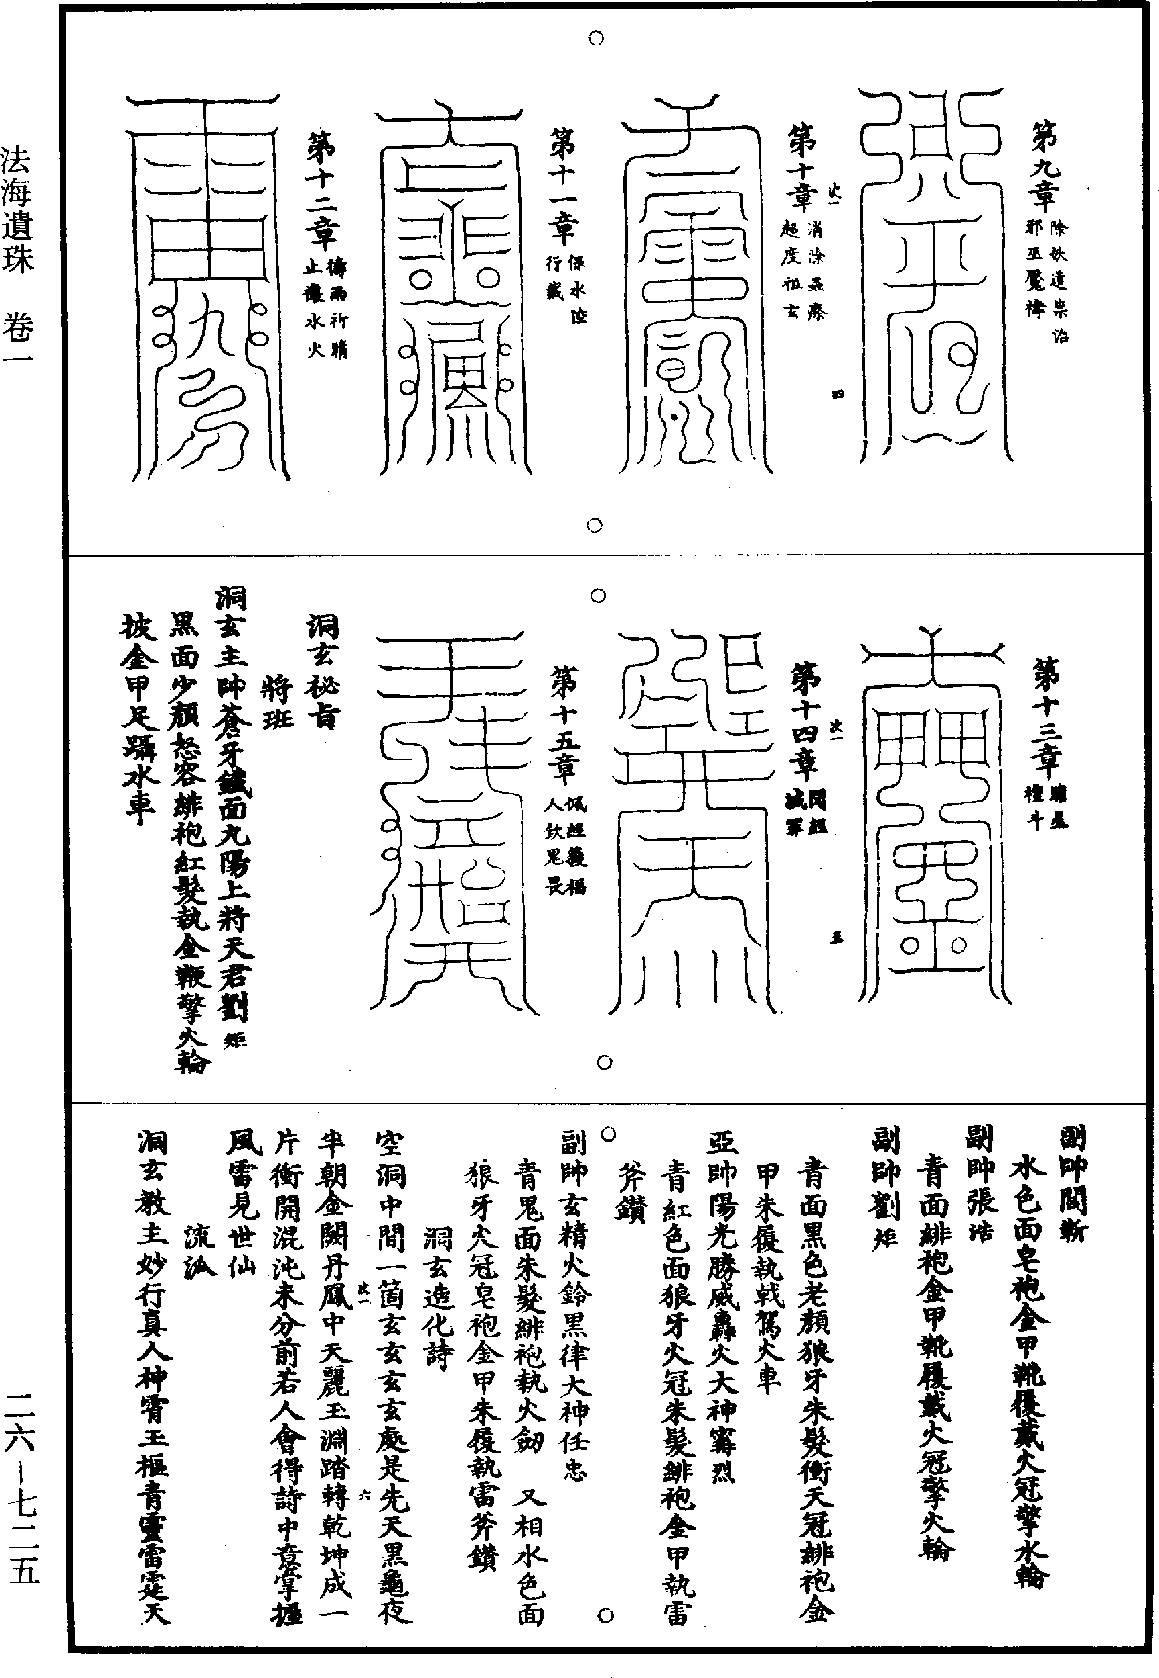 法海遺珠 卷一
二六—七二五
第九章 除妖遣祟治
邪巫魘禱
第十章 消除蟲瘵
超度祖玄
第十一章 保水陸
行藏
第十二章 禱雨祈晴
止禳水火
第十三章
禮斗
第十四章 
滅罪
第十五章 佩經獲福
人欽鬼畏
洞玄祕旨
將班
洞玄主帥蒼牙鐵面九陽上將天君劉矩
黑面少顏怒容緋袍紅髮執金鞭擎火輪
披金甲足躡水車
副帥閻
水色面皂袍金甲靴履戴火冠擎水輪
副帥張浩
青面緋袍金甲靴履戴火冠擎火輪
副帥劉矩
青面黑色老顏狼牙朱髮衝天冠緋袍金
甲朱履執戟駕火車
亞帥陽光勝威轟火大神甯烈
青紅色面狼牙火冠朱髮緋袍金甲執雷
斧鑽
副帥玄精火鈴黑律大神任忠
青鬼面朱髮緋袍執火劒 又相水色面
狼牙火冠皂袍金甲朱履執雷斧鑽
洞玄造化詩
空洞中間一箇玄玄玄玄處是先天黑龜夜
半朝金闕丹鳳中天麗玉淵踏轉乾坤成一
片衝開混沌未分前若人會得詩中意掌握
風雷見世仙
流派
洞玄教主妙行真人神霄玉樞青靈雷霆天